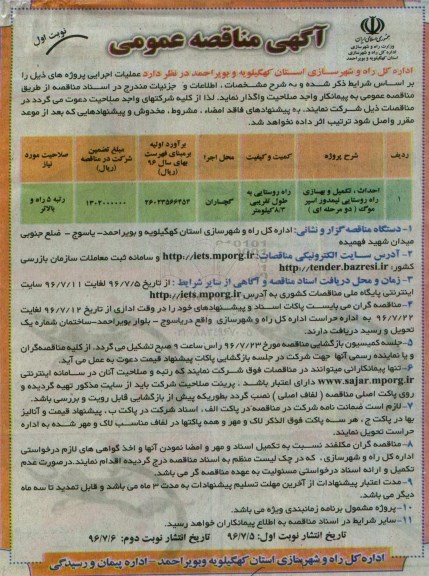 جمهوری اسلامی ایران
وزارت راه و شهرسازی
اداره کل راه و شهرسازی
استان کهگیلویه و بویراحمد
آگهی مناقصه عمومی
نوبت اول
اداره کل راه و شهرسازی استان کهگیلویه و بویراحمد در نظر دارد عملیات اجرایی پروژه های ذیل را
بر اساس شرایط ذکر شده و به شرح مشخصات ، اطلاعات و جزئیات مندرج در اسناد مناقصه از طریق
مناقصه عمومی به پیمانکار واجد صلاحیت واگذار نماید. لذا از کلیه شرکتهای واجد صلاحیت دعوت می گردد در
مناقصات ذیل شرکت نمایند. به پیشنهادهای فاقد امضاء ، مشروط ، مخدوش و پیشنهادهایی که بعد از موعد
مقرر واصل شود ترتیب اثر داده نخواهد شد.
ردیف | شرح پروژه | کمیت و کیفیت | محل اجرا | برآورد اولیه برمبنای فهرست بهای سال ۹۶ (ریال) | مبلغ تضمین شرکت در مناقصه (ریال) | صلاحیت مورد نیاز
۱ | احداث ، تکمیل و بهسازی راه روستایی نیمدور اسپر موگ ( دو مرحله ای ) | راه روستایی به طول تقریبی ۸/۳ کیلومتر | گچساران | ۲۶۰۲۳۵۶۶۲۵۲ | ۱۳۰۲۰۰۰۰۰۰ | رتبه ۵ راه و بالاتر
۱- دستگاه مناقصه گزار و نشانی: اداره کل راه و شهرسازی استان کهگیلویه و بویراحمد- یاسوج - ضلع جنوبی
میدان شهید فهمیده
۲- آدرس سایت الکترونیکی مناقصات: http://iets.mporg.ir و سامانه ثبت معاملات سازمان بازرسی
کشور: http://tender.bazresi.ir
۳- زمان و محل دریافت اسناد مناقصه و آگاهی از سایر شرایط : از تاریخ ۹۶/۷/۵ لغایت ۹۶/۷/۱۱ سایت
اینترنتی پایگاه ملی مناقصات کشوری به آدرس http://iets.mporg.ir
۴- مناقصه گران می بایست پاکات اسناد و پیشنهادهای خود را در وقت اداری از تاریخ ۹۶/۷/۱۲ لغایت
۹۶/۷/۲۲ به اداره حراست اداره کل راه و شهرسازی واقع دریاسوج - بلوار بویراحمد-ساختمان شماره یک
تحویل و رسید دریافت دارند.
۵- جلسه کمیسیون بازگشایی مناقصه مورخ ۹۶/۷/۲۳ راس ساعت ۹ صبح تشکیل می گردد. از کلیه مناقصه گران
و یا نماینده رسمی آنها جهت شرکت در جلسه بازگشایی پاکات پیشنهاد قیمت دعوت به عمل می آید.
۶- تنها پیمانکارانی میتوانند در مناقصات فوق شرکت نمایند که رتبه و صلاحیت آنان در سامانه اینترنتی
www.sajar.mporg.ir دارای اعتبار باشد . پرینت صلاحیت شرکت باید از سایت مذکور تهیه گردیده و
روی پاکت اصلی مناقصه ( لفاف اصلی ) نصب گردد بطوریکه پیش از بازگشایی قابل رویت و بررسی باشد.
۷- لازم است ضمانت نامه شرکت در مناقصه در پاکت الف ، اسناد شرکت در پاکت ب ، پیشنهاد قیمت و آنالیز
بها در پاکت ج ، هر سه پاکت فوق الذکر لاک و مهر و همه پاکتها در لفاف مناسب لاک و مهر شده به اداره
حراست تحویل نمایند.
۸- مناقصه گران مکلفند نسبت به تکمیل اسناد و مهر و امضا نمودن آنها و اخذ گواهی های لازم درخواستی
اداره کل راه و شهرسازی ، که در چک لیست منظم به اسناد مناقصه درج گردیده اقدام نمایند.درصورت عدم
تکمیل و ارائه اسناد درخواستی مسئولیت به عهده مناقصه گر می باشد.
۹- مدت اعتبار پیشنهادات از آخرین مهلت تسلیم پیشنهادات به مدت ۳ ماه می باشد و قابل تمدید تا سه ماه
دیگر می باشد.
۱۰- پروژه مشمول برنامه زمانبندی ویژه می باشد.
۱۱- سایر شرایط در اسناد مناقصه به اطلاع پیمانکاران خواهد رسید.
تاریخ انتشار نوبت اول: ۹۶/۷/۵ تاریخ انتشار نوبت دوم: ۹۶/۷/۶
اداره کل راه و شهرسازی استان کهگیلویه وبویراحمد - اداره پیمان و رسیدگی